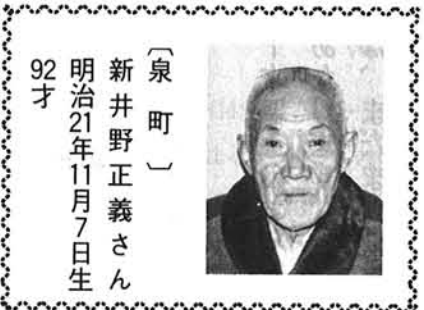 〔泉町〕
新井野正義さん
明治21年11月7日生
92才